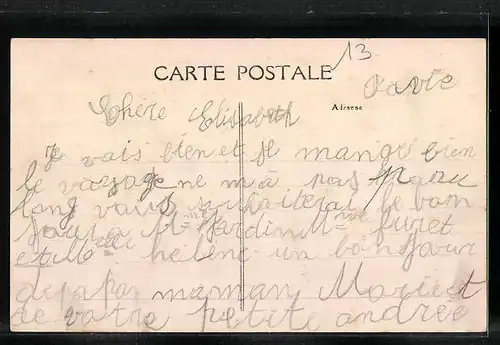 13
CARTE POSTALE
Adresse
Chère Elisabeth
Je vais bien et je mange bien
le vayage ne m'a pas paru
long vous souhaiterai le bon
jour a Mme Jardin Mme Furet
et Mlle helène un bonjour
de papa maman Marie et
de votre petite andrée